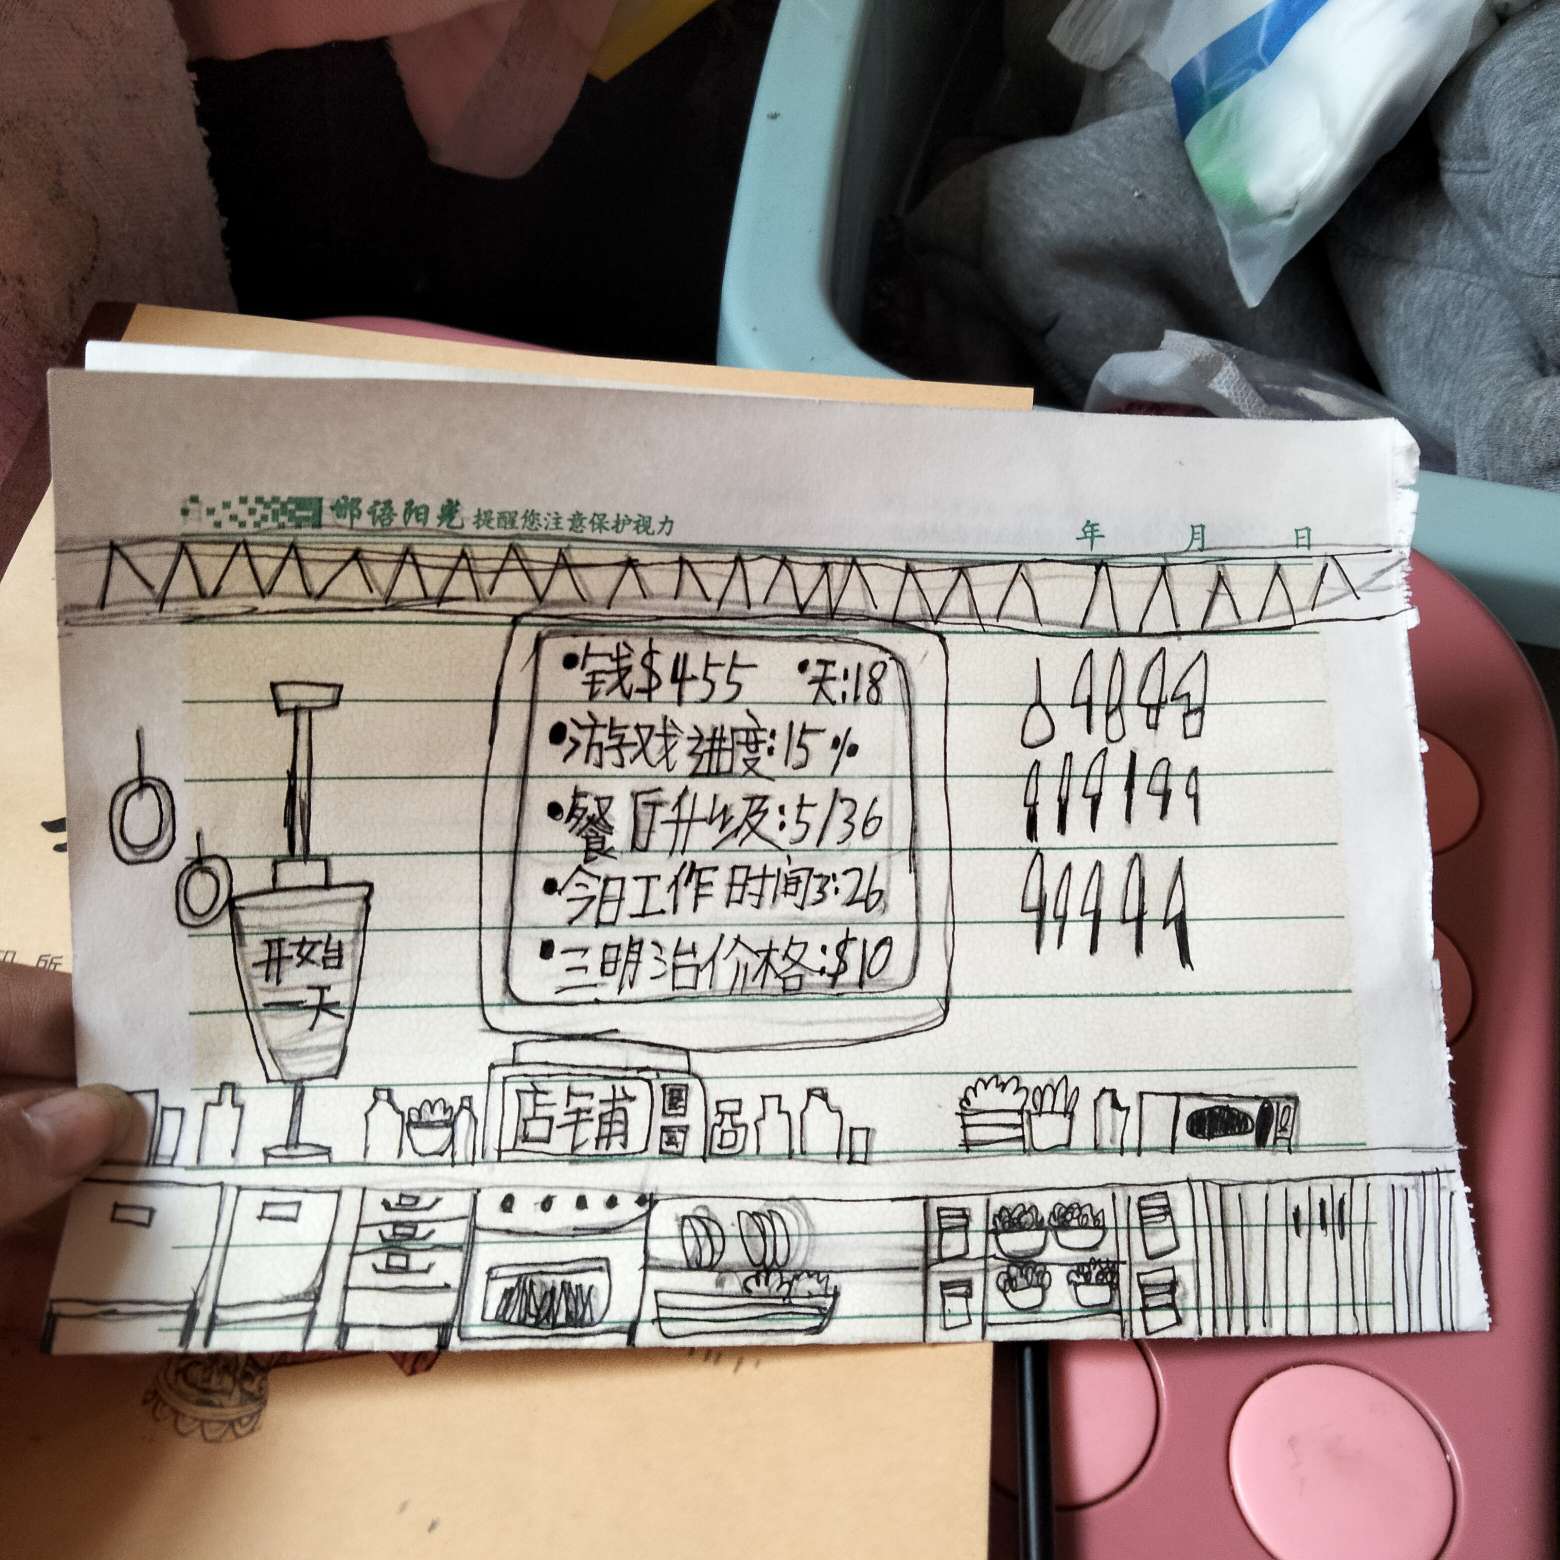 邯语阳光 提醒您注意保护视力
年 月 日
•钱$455 •天:18
•游戏进度:15%
•餐厅升级:5/36
•今日工作时间3:26
•三明治价格:$10
开始
一天
店铺